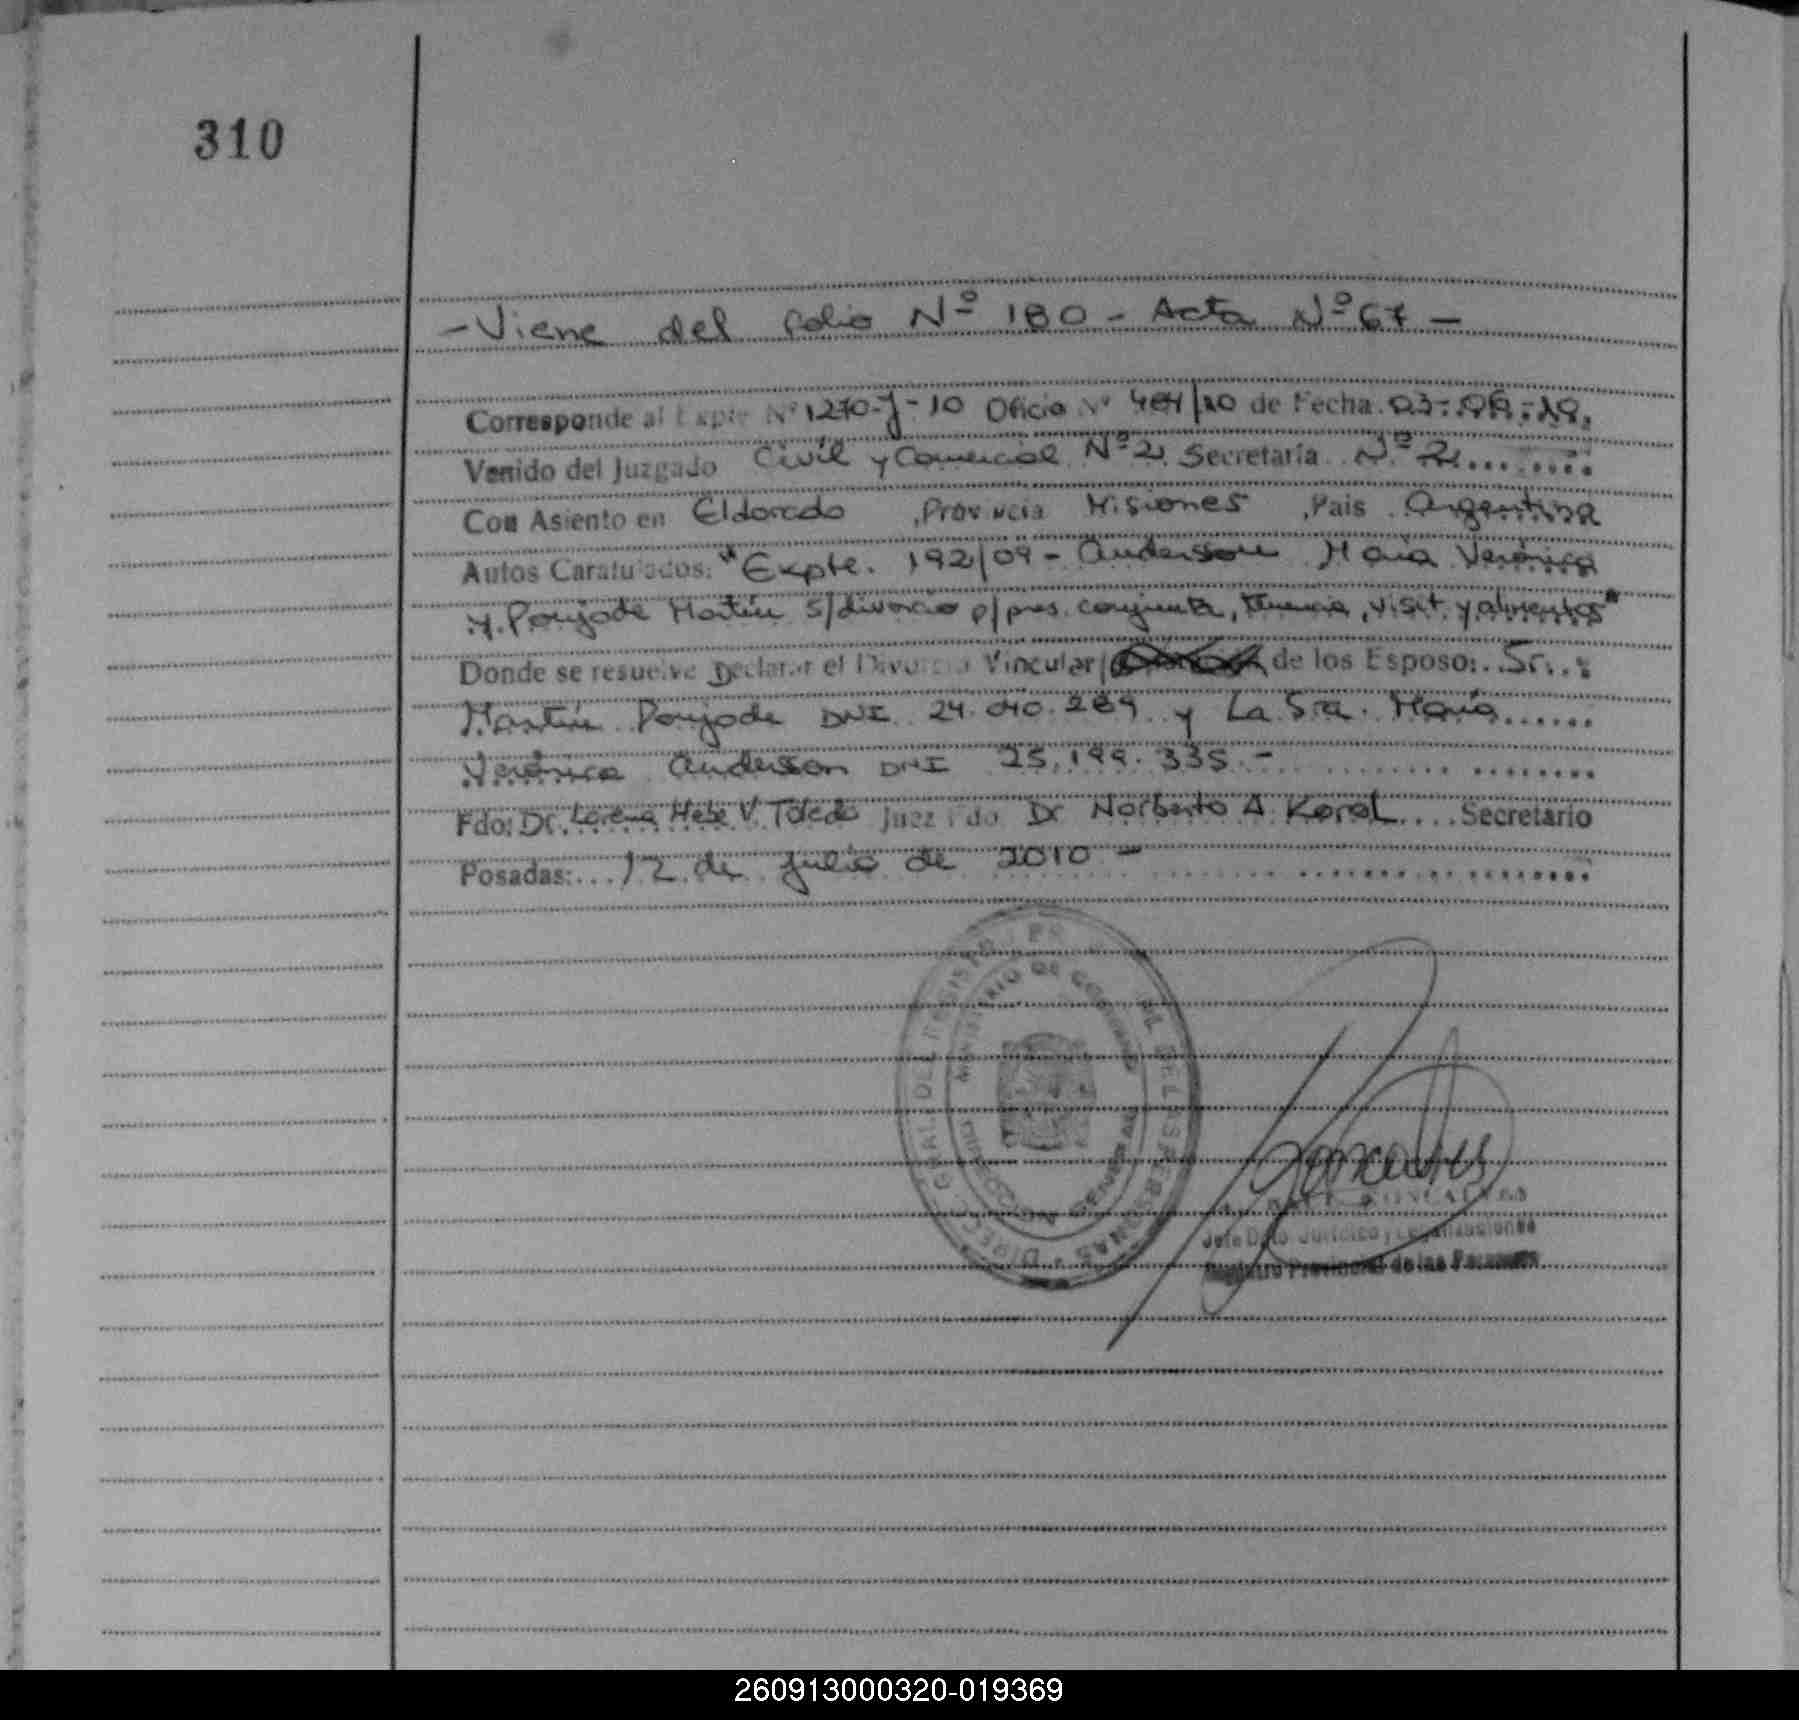 310
- Viene del folio Nº 180 - Acta Nº 67 -
Corresponde al Expte Nº 1270-J-10 Oficio Nº /10 de Fecha 03-06-10.
Venido del Juzgado Civil y Comercial Nº 2 Secretaría Nº 2
Con Asiento en Eldorado , Provincia Misiones , Pais Argentina
Autos Caratulados: "Expte. 192/09 - Anderson María Verónica
y Poujade Martín s/divorcio p/pres. conjunta, tenencia, visit. y alimentos"
Donde se resuelve Declarar el Divorcio Vincular/ de los Esposo: Sr. :
Martín Poujade DNI 24.040.289 y La Sra. María
Verónica Anderson DNI 25.199.335.-
Fdo: Dr. Lorena Hebe V. Toledo Juez Fdo Dr Norberto A Korol Secretario
Posadas: 12 de Julio de 2010 -
DIREC. GRAL. DEL REGISTRO PROVINCIAL DE LAS PERSONAS
MINISTERIO DE GOBIERNO
GONCALVES
Jefe Dpto. Jurídico y Legalizaciones
Registro Provincial de las Personas
260913000320-019369